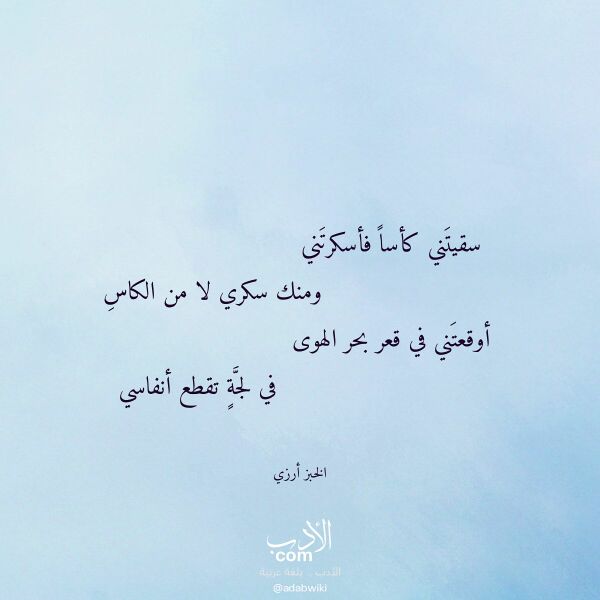 سقيتَني كأساً فأسكرتَني
ومنك سكري لا من الكاسِ
أوقعتَني في قعر بحر الهوى
في لجَّةٍ تقطع أنفاسي
الخبز أرزي
الأدب
com
الأدب .. بلغة عربية
@adabwiki